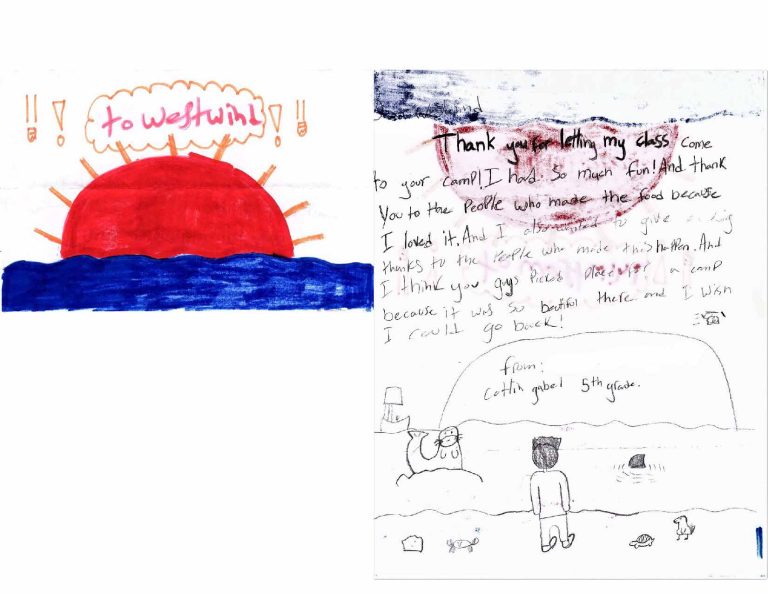 to Westwind
Thank you for letting my class come
to your camp! I had so much fun! And thank
You to the People who made the food because
I loved it. And I also wanted to give
thanks to the People who made this happen. And
I think you guys Picked Place for a camp
because it was so beatiful there and I wish
I could go back!
from:
Catlin gabel 5th grade.